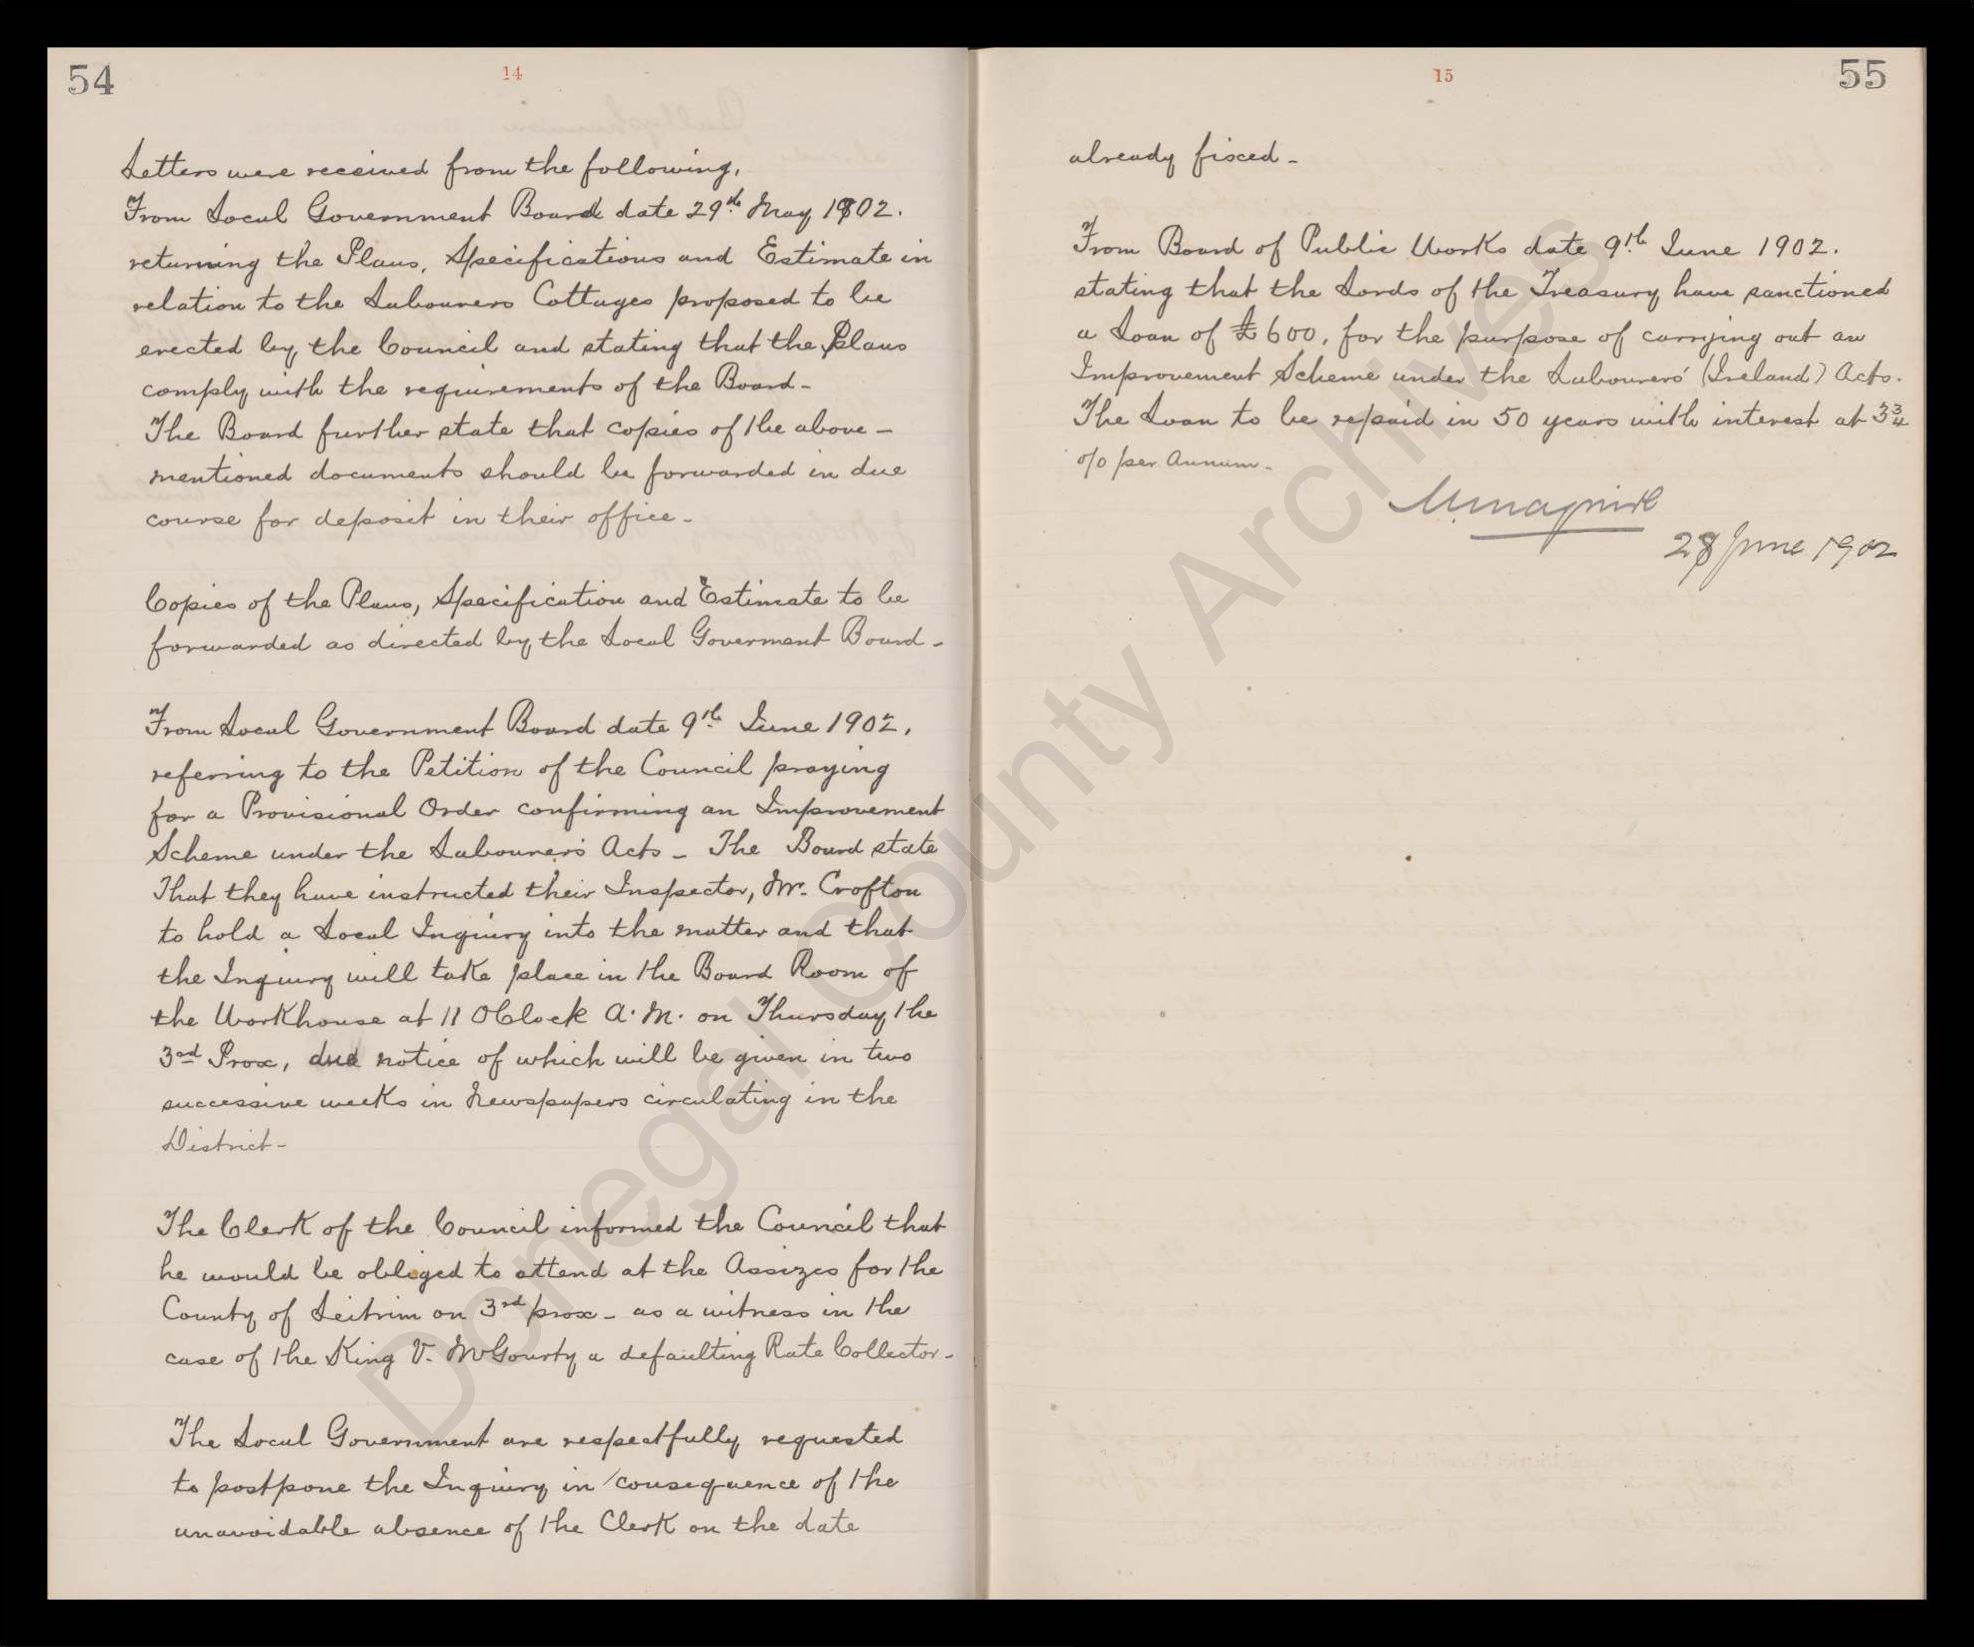 54
14
Letters were received from the following,
From Local Government Board date 29th May 1902.
returning the Plans, Specifications and Estimate in
relation to the Labourers Cottages proposed to be
erected by the Council and stating that the Plans
comply with the requirements of the Board -
The Board further state that copies of the above -
mentioned documents should be forwarded in due
course for deposit in their office -
Copies of the Plans, Specification and Estimate to be
forwarded as directed by the Local Goverment Board -
From Local Government Board date 9th June 1902,
referring to the Petition of the Council praying
for a Provisional Order confirming an Improvement
Scheme under the Labourers Acts - The Board state
That they have instructed their Inspector, Mr. Crofton
to hold a Local Inquiry into the matter and that
the Inquiry will take place in the Board Room of
the Workhouse at 11 OClock A.M. on Thursday the
3rd Prox, due notice of which will be given in two
successive weeks in Newspapers circulating in the
District -
The Clerk of the Council informed the Council that
he would be obliged to attend at the Assizes for the
County of Leitrim on 3rd prox - as a witness in the
case of the King V. McGourty a defaulting Rate Collector -
The Local Government are respectfully requested
to postpone the Inquiry in consequence of the
unavoidable absence of the Clerk on the date
15
55
already fixed -
From Board of Public Works date 9th June 1902.
stating that the Lords of the Treasury have sanctioned
a Loan of £600, for the purpose of carrying out an
Improvement Scheme under the Labourers' (Ireland) Acts.
The Loan to be repaid in 50 years with interest at 3¾
o/o per Annum -
28 June 1902
Donegal County Archives